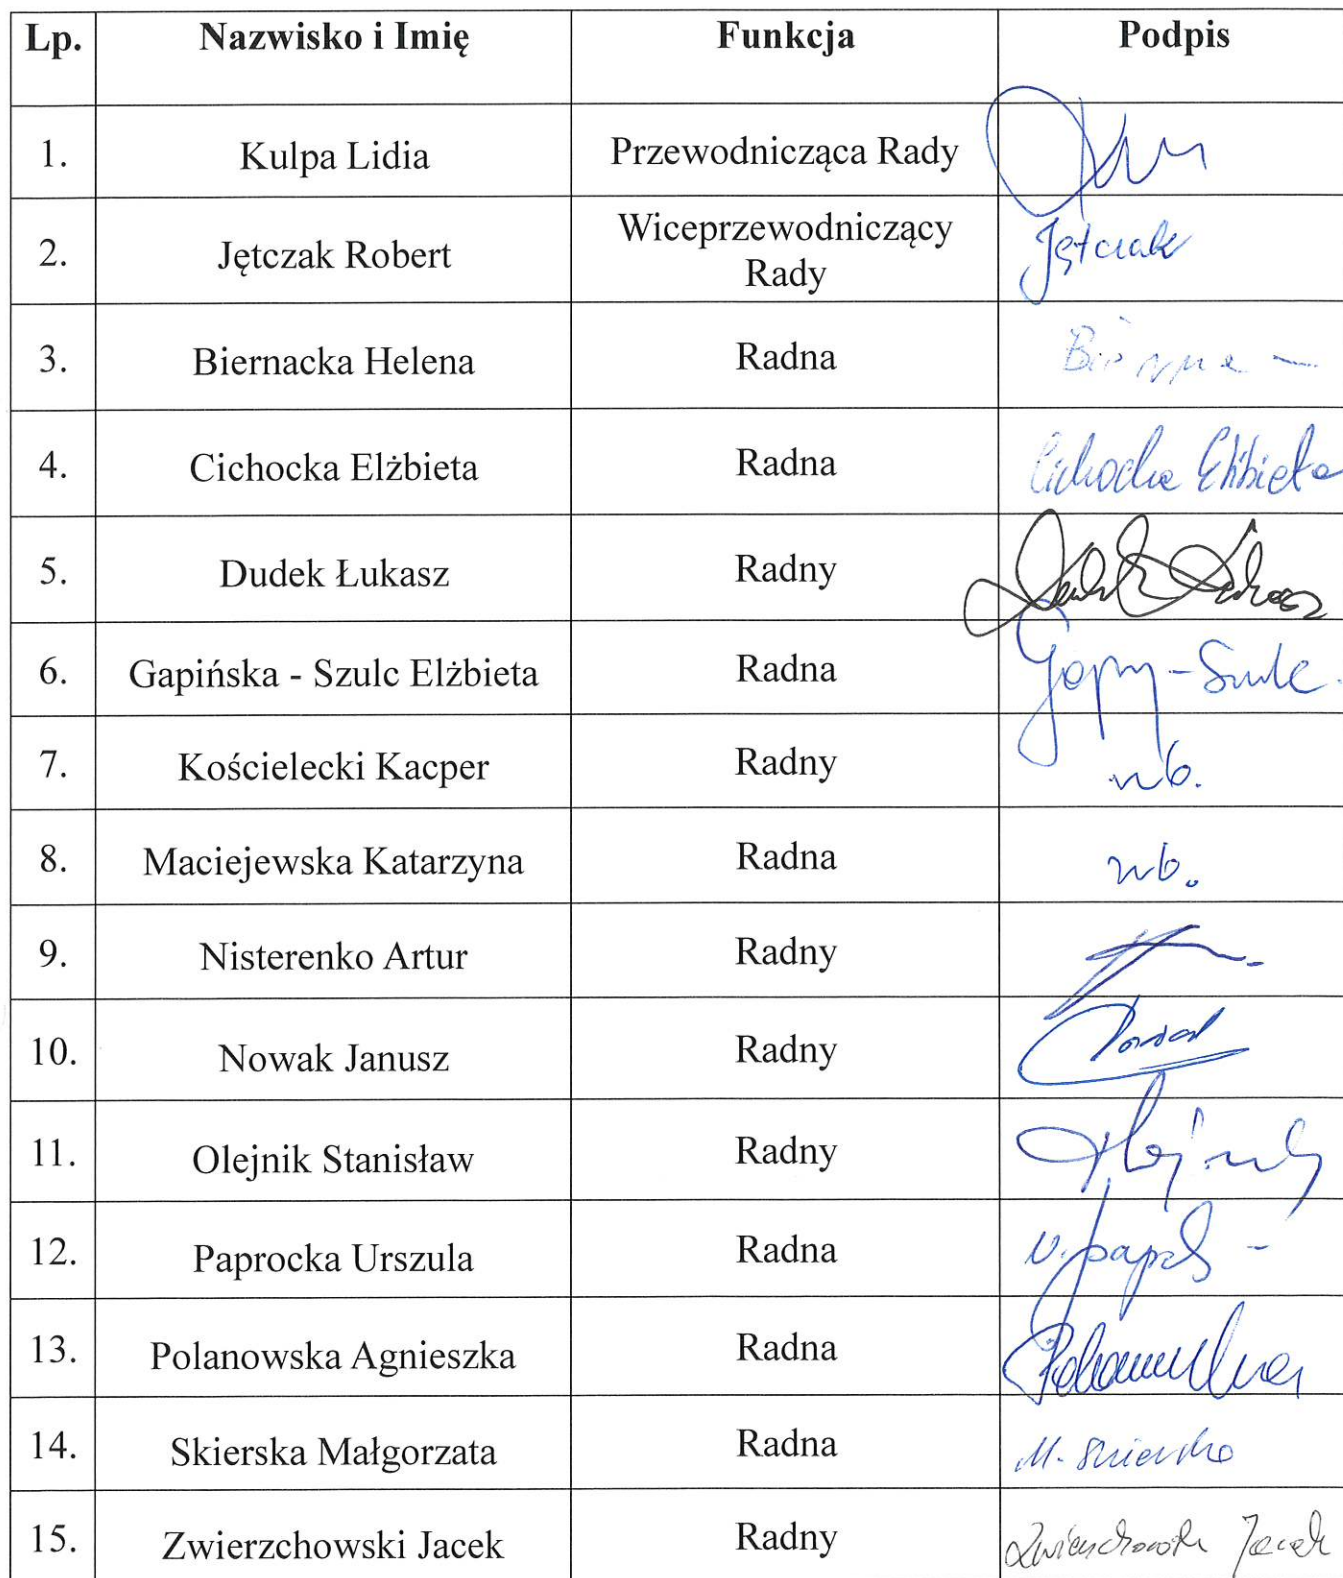 Lp. Nazwisko i Imię Funkcja Podpis
1. Kulpa Lidia Przewodnicząca Rady
2. Jętczak Robert Wiceprzewodniczący Rady Jętczak
3. Biernacka Helena Radna
4. Cichocka Elżbieta Radna Cichocka Elżbieta
5. Dudek Łukasz Radny Dudek Łukasz
6. Gapińska - Szulc Elżbieta Radna -Szulc
7. Kościelecki Kacper Radny nb.
8. Maciejewska Katarzyna Radna nb.
9. Nisterenko Artur Radny
10. Nowak Janusz Radny
11. Olejnik Stanisław Radny Olejnik
12. Paprocka Urszula Radna
13. Polanowska Agnieszka Radna Polanowska
14. Skierska Małgorzata Radna M. Skierska
15. Zwierzchowski Jacek Radny Zwierzchowski Jacek